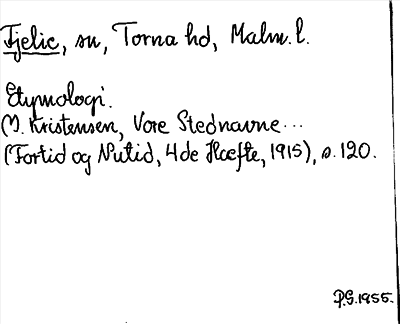 Fjelie, sn, Torna hd, Malm. l.
Etymologi.
(M. Kristensen, Vore Stednavne...
(Fortid og Nutid, 4de Hæfte, 1915), s. 120.
P.G. 1955.